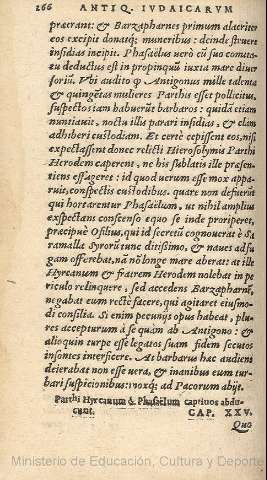 266 ANTIQ. IVDAICARVM
præerant: & Barzaphanes primum alacriter
eos excipit donatq́; muneribus: deinde struere
insidias incipit. Phasaëlus verò cũ suo comitatu
deductus est in propinquũ iuxta mare diuersorium.
Vbi audito q́ Antigonus mille talenta
& quingētas mulieres Parthis esset pollicitus,
suspectos iam habuerũt barbaros: quidã etiam
nuntiauit, noctu illis parari insidias, & clam
adhiberi custodiam. Et certè cepissent eos, nisi
expectassent donec relicti Hierosolymis Parthi
Herodem caperent, ne his sublatis ille præsentiens
effugeret: id quod verum esse mox apparuit,
conspectis custodibus. quare non defuerũt
qui hortarentur Phasaëlum, ut nihil amplius
exspectans conscenso equo se inde proriperet,
præcipuè Ofilius, qui id secretũ cognouerat è Saramalla
Syrorũ tunc ditissimo, & naues ad fugam
offerebat, nã nõ longe mare aberat: at ille
Hyrcanum & fratrem Herodem nolebat in periculo
relinquere, sed accedens Barzapharnẽ,
negabat eum rectè facere, qui agitaret eiusmodi
consilia. Si enim pecunijs opus habeat, plures
accepturum à se quàm ab Antigono: &
alioquin turpe esse legatos suam fidem secutos
insontes interficere. At barbarus hac audiens
deierabat non esse uera, & inanibus eum turbari
suspicionibus: moxq́; ad Pacorum abijt.
Parthi Hyrcanum & Phasëlum captiuos abducunt.
CAP. XXV.
Quo
Ministerio de Educación, Cultura y Deporte